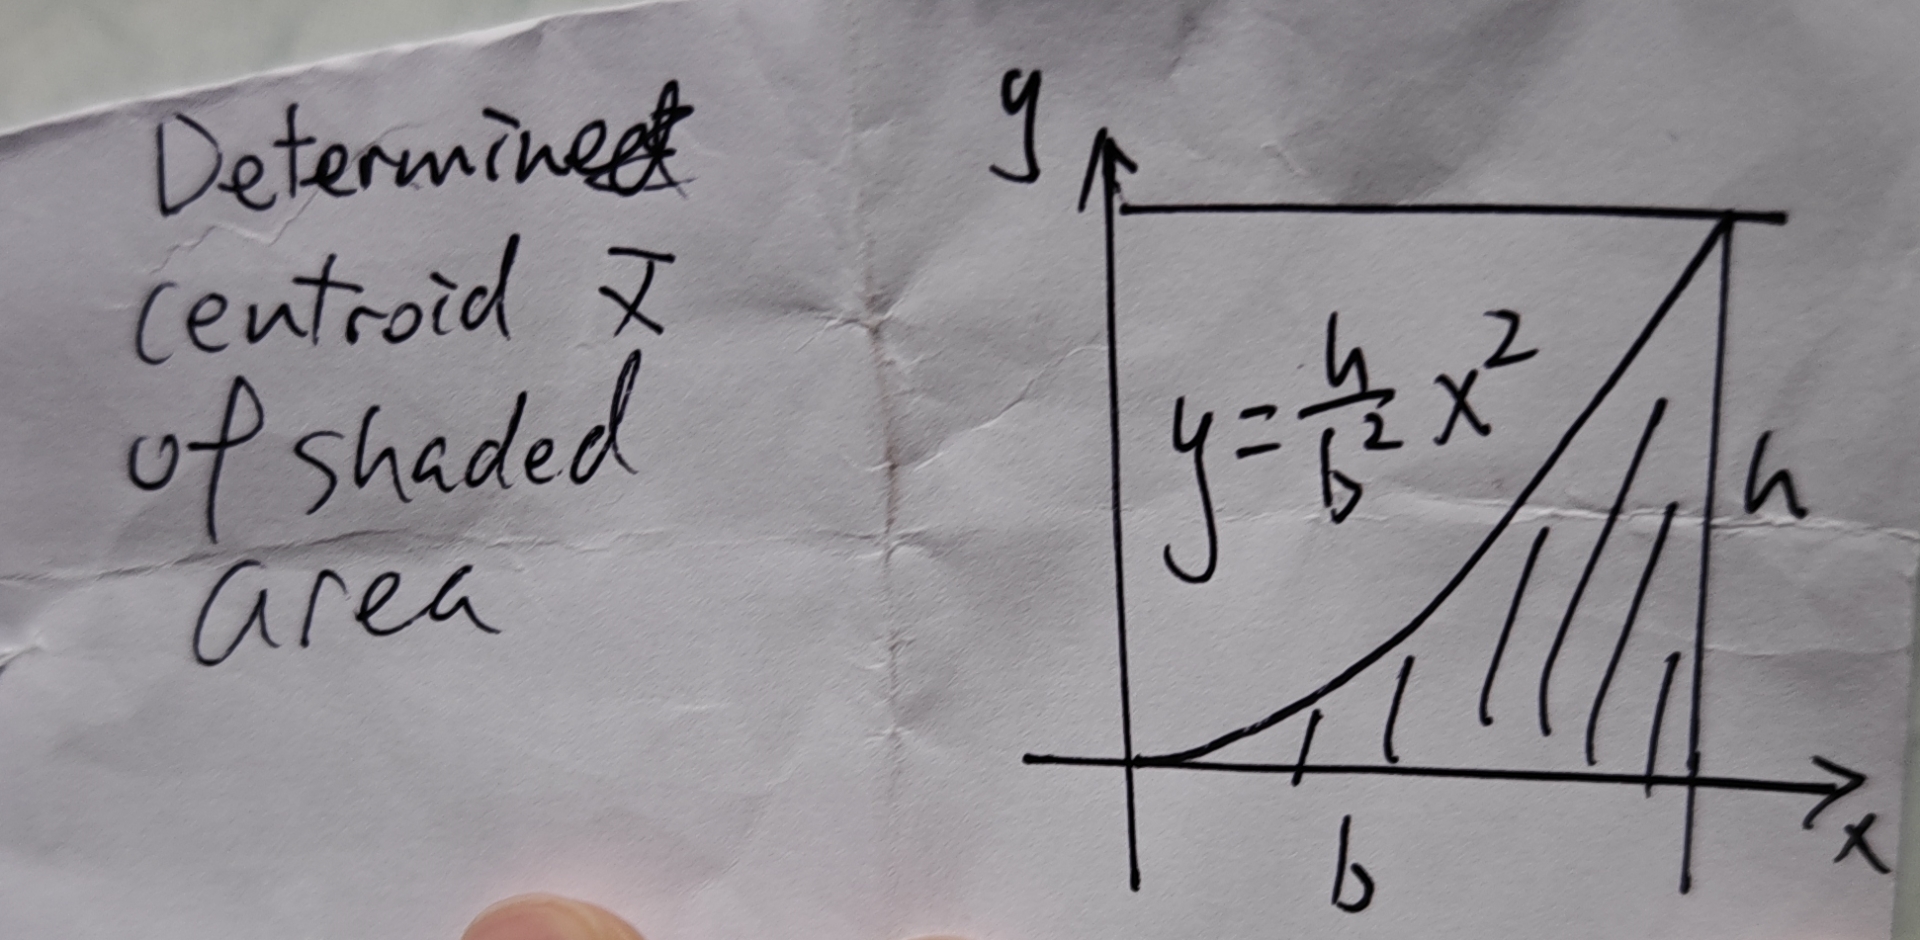 Determine
centroid x̄
of shaded
area
y
y = h/b² x²
h
b
x